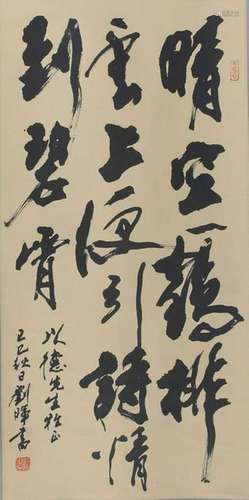 晴空一鹤排
云上便引詩情
到碧霄
以德先生雅正
己巳秋日劉暉書